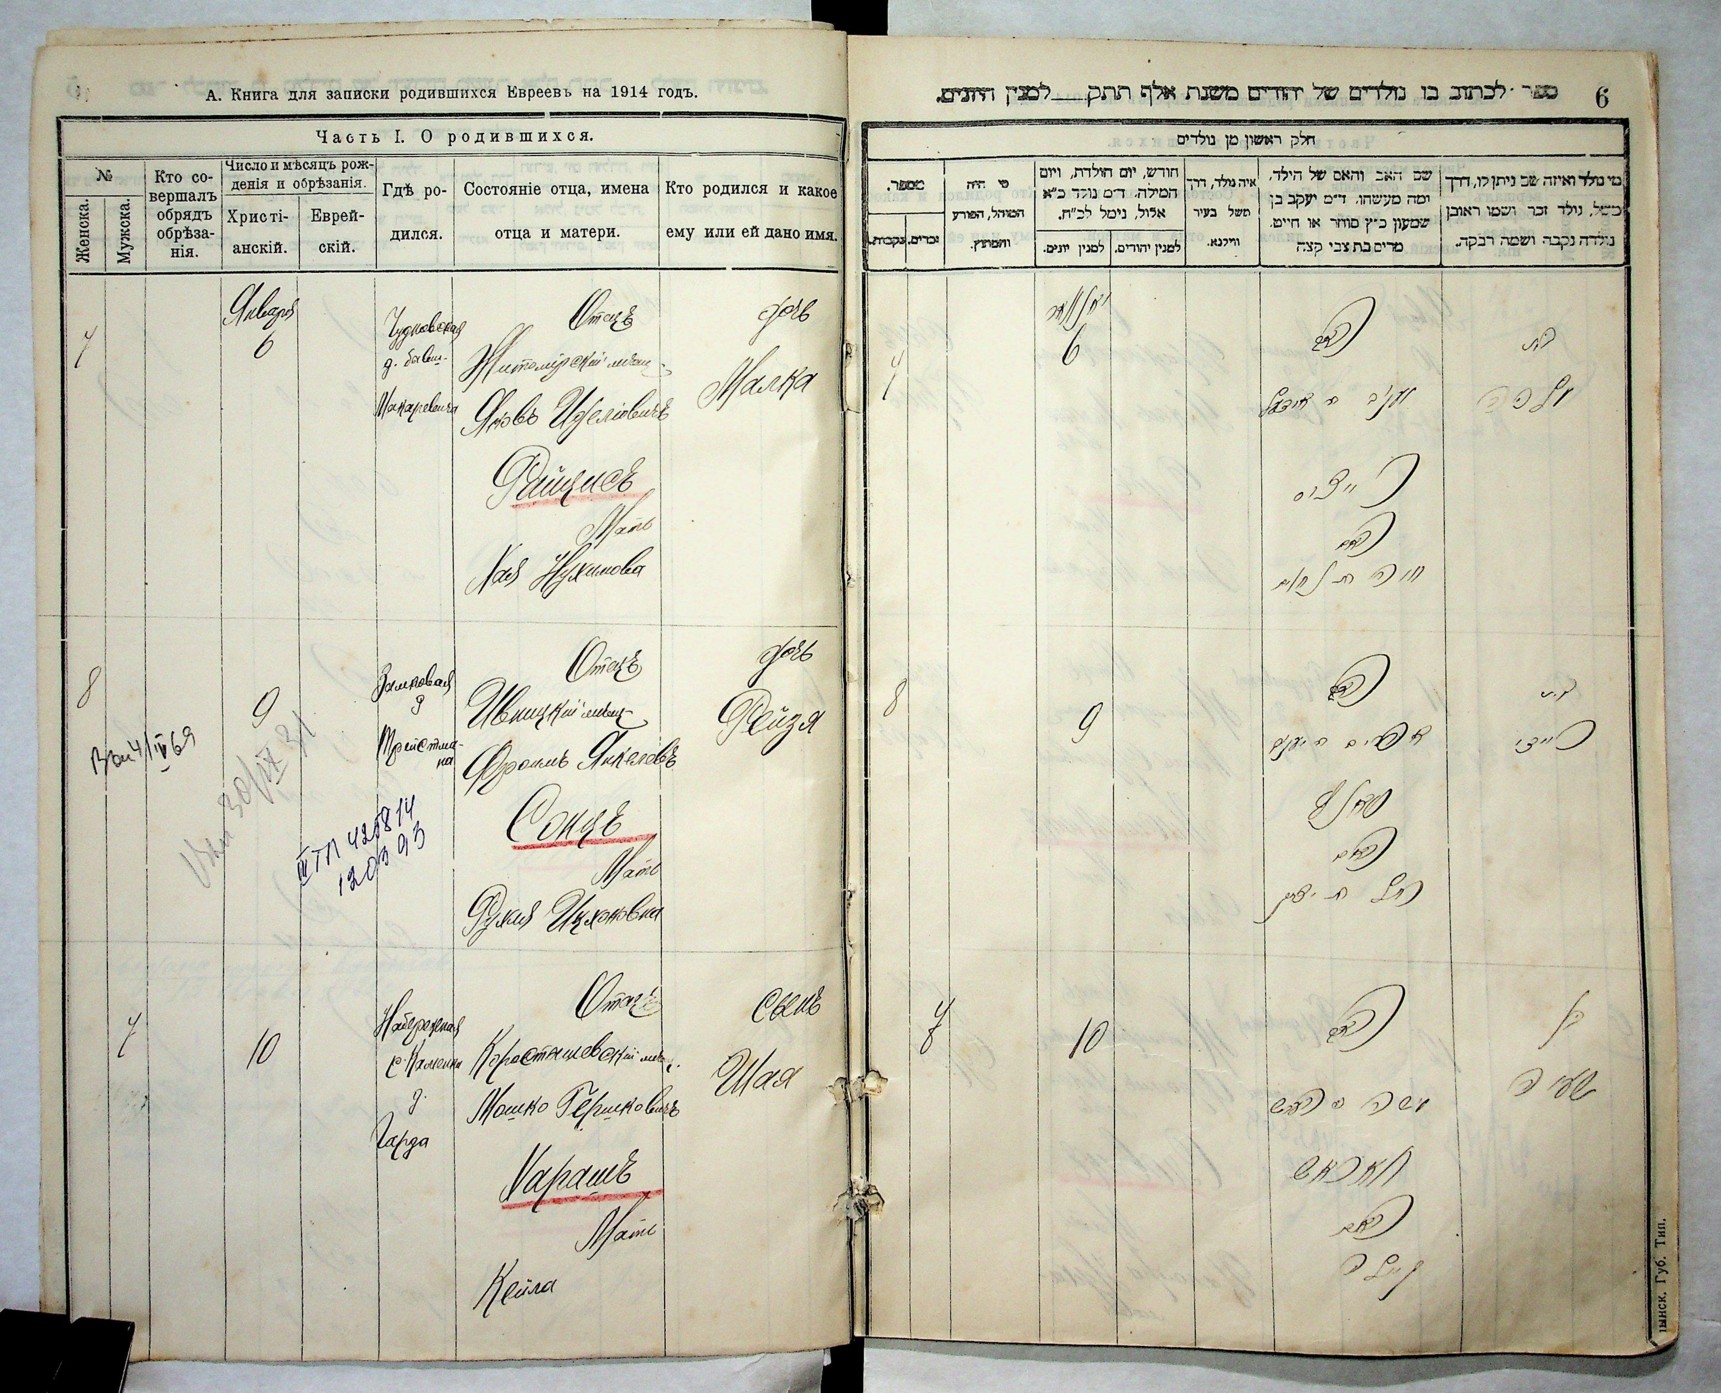 А. Книга для записки родившихся Евреевъ на 1914 годъ.
Часть I. О родившихся.
№
Женска.
Мужска.
Кто со-
вершалъ
обрядъ
обрѣза-
нія.
Число и мѣсяцъ рож-
денія и обрѣзанія.
Христі-
анскій.
Еврей-
скій.
Гдѣ ро-
дился.
Состояніе отца, имена
отца и матери.
Кто родился и какое
ему или ей дано имя.
7
Января
6
Чудновская
Макаревича
Отецъ
Житомірскій мѣщ.
Яковъ Иделіовичъ
Рейцисъ
Мать
Хая Нухимова
дочь
Малка
8
9
Замковая
д
Тройстма-
на
Отецъ
Ивницкій мѣщ.
Фроимъ Янкелевъ
Сонцъ
Мать
Рухля Ицхоковна
дочь
Рейзя
7
10
Набережная
с. Каменки
д.
Гарда
Отецъ
Коростышевскій мѣщ.
Мошко Гершковичъ
Харашъ
Мать
Кейла
сынъ
Шая
ספר לכתוב בו נולדים של יהודים משנת אלף תתק למנין היונים.
6
חלק ראשון מן נולדים
מספר.
נקבות.
זכרים.
מי היה
המוהל, הפורע
והמוצץ.
חודש, יום הולדת, ויום
המילה. ד״מ נולד כ״א
אלול, נימל לכ״ח.
למנין יונים.
למנין יהודים.
איה נולד, דרך
משל בעיר
ווילנא.
שם האב והאם של הילד,
ומה מעשהו. ד״מ יעקב בן
שמעון כ״ץ סוחר או חיים.
מרים בת צבי קצה
מי נולד ואיזה שם ניתן לו, דרך
משל, נולד זכר ושמו ראובן
נולדה נקבה ושמה רבקה.
7
יאנואר
6
האב
האם
בת
מלכה
8
9
האב
האם
בת
רייזי
7
10
האב
משה ב הערש
חאראש
האם
קיילה
בן
שעיה
ынск. Губ. Тип.